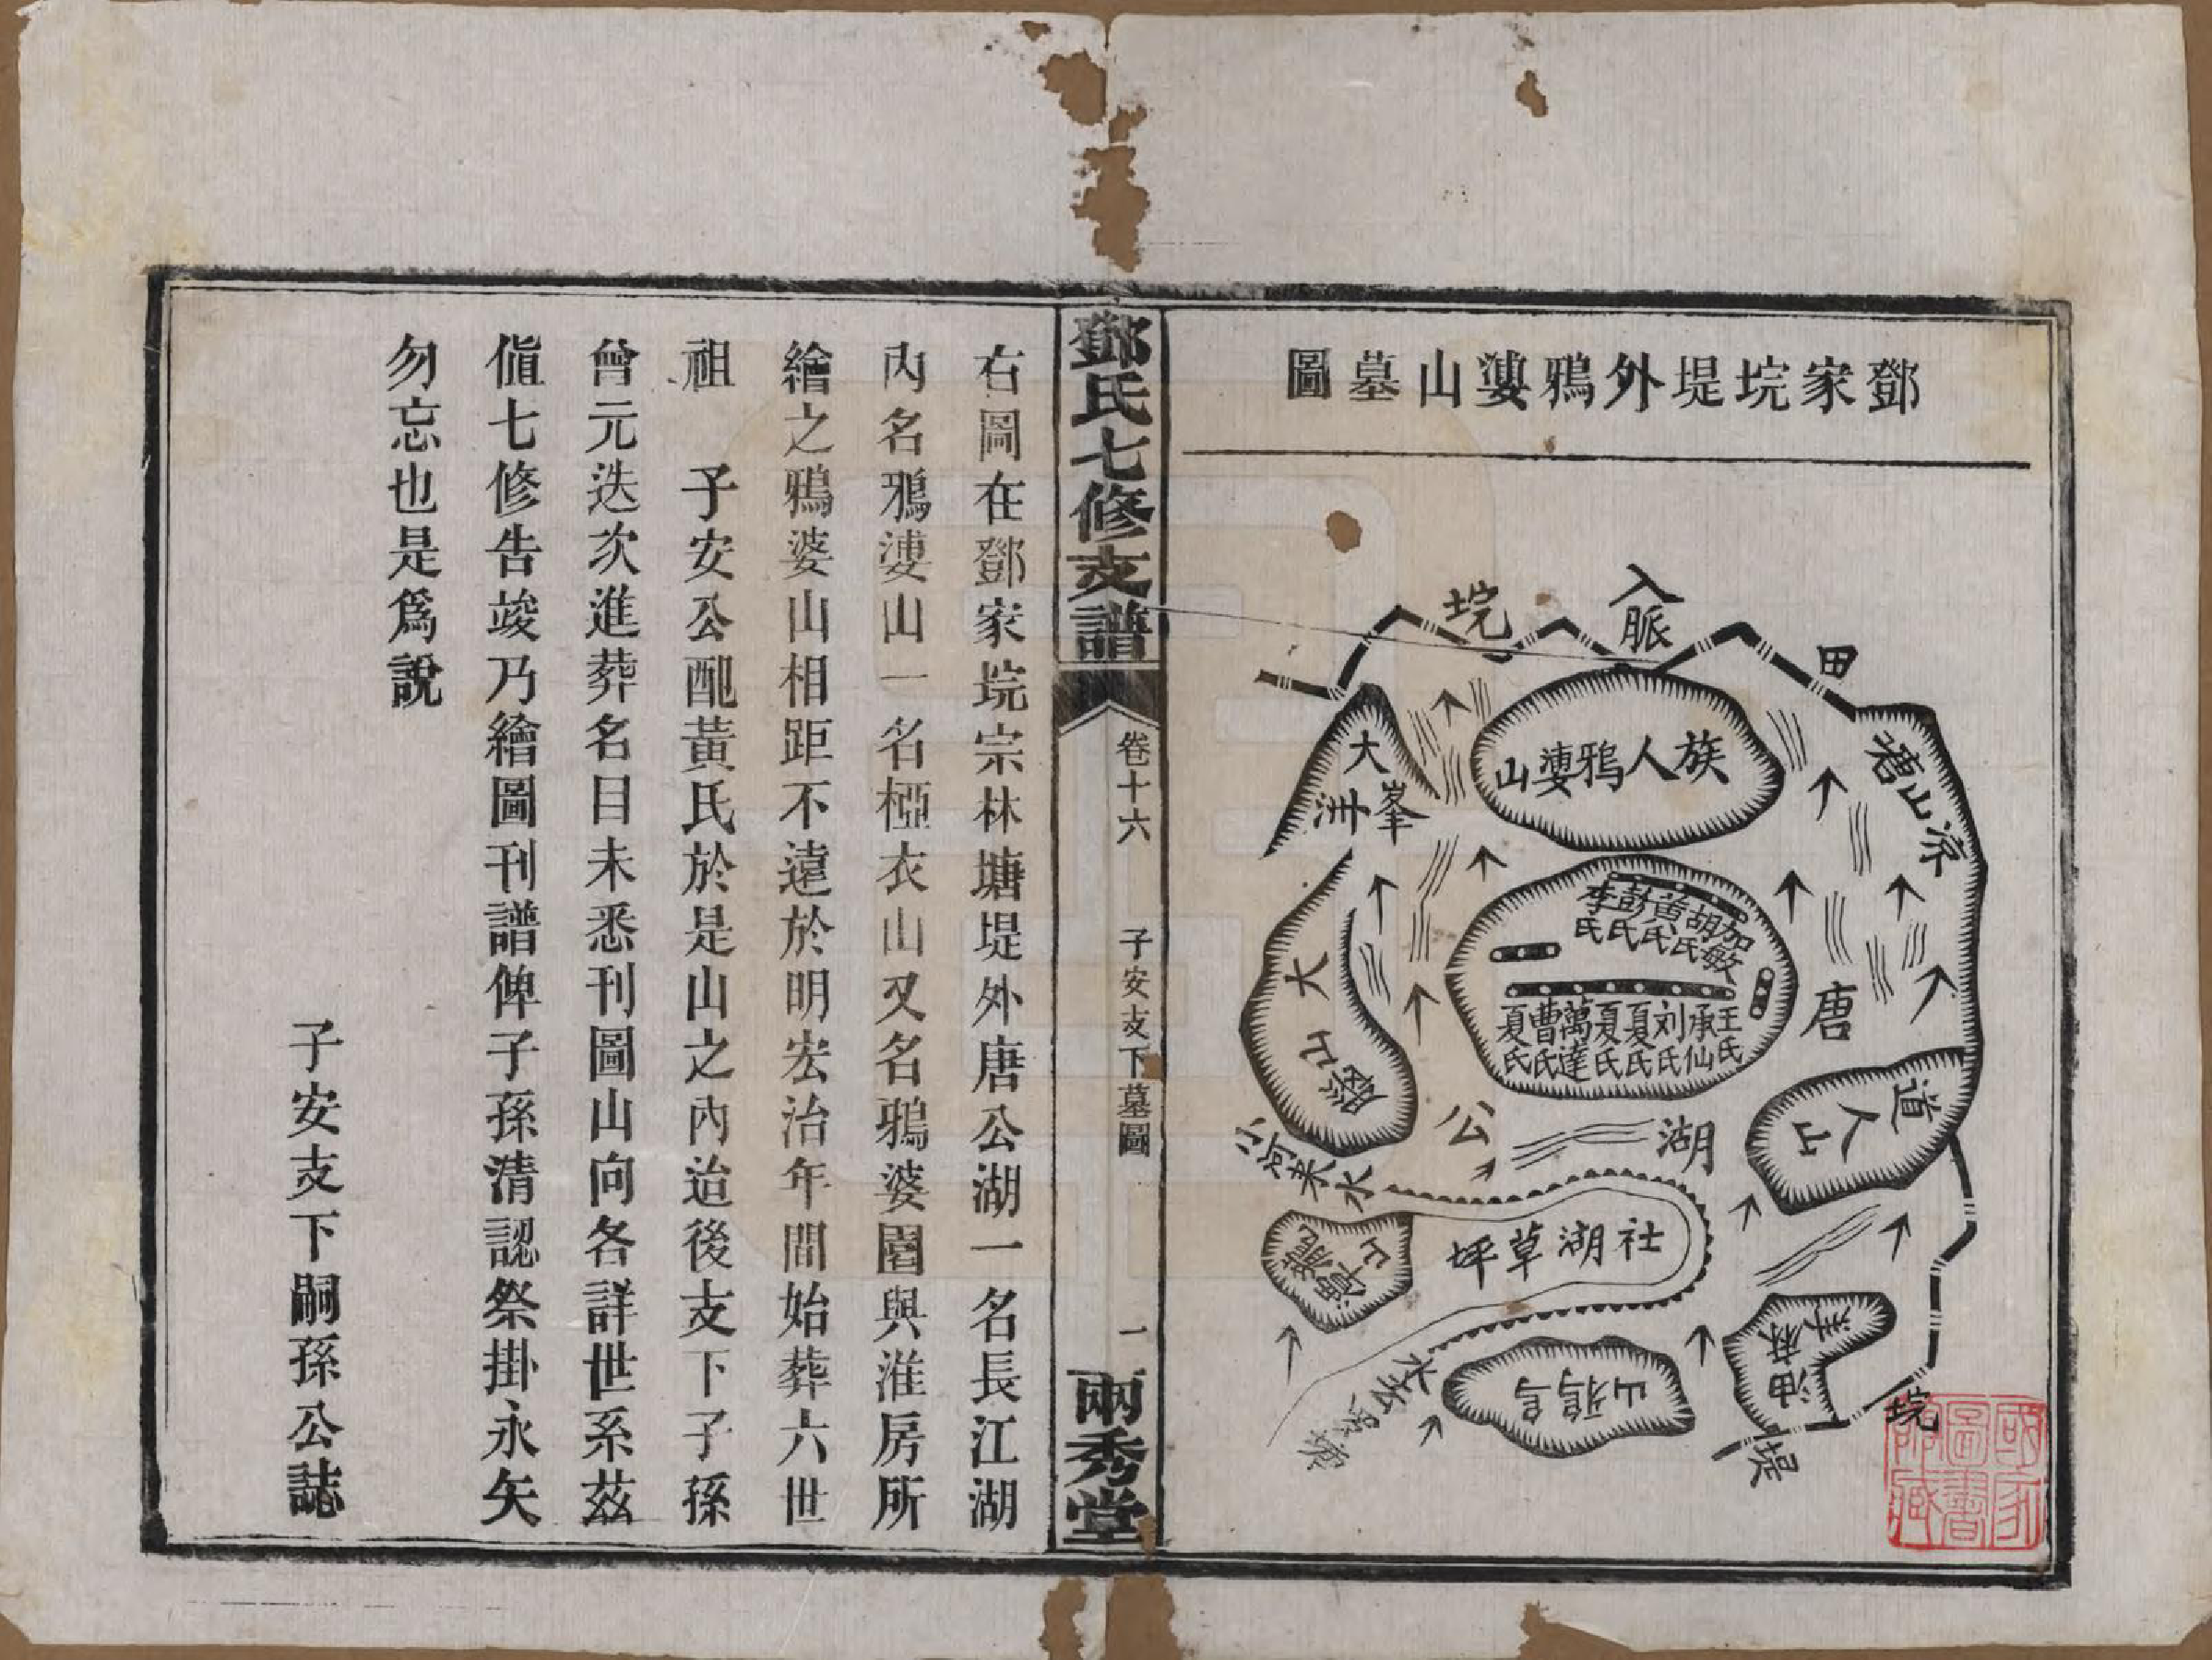 鄧家垸堤外鴉漊山墓圖
入脈
垸
田
族人鴉漊山
大洋峯
大山
唐
公
湖
加敏
胡氏
黃氏
彭氏
李氏
王氏
承仙
刘氏
夏氏
夏氏
萬達
曹氏
夏氏
道人山
小河来水
社湖草坪
水去
烏鴉山
油麻洋
垸
堤
國家圖書館藏
鄧氏七修支譜
卷十六
子安支下墓圖
一
兩秀堂
右圖在鄧家垸宗林塘堤外唐公湖一名長江湖
內名鴉漊山一名椏衣山又名鴉婆園與淮房所
繪之鴉婆山相距不遠於明宏治年間始葬六世
祖　子安公配黃氏於是山之內迨後支下子孫
曾元迭次進葬名目未悉刊圖山向各詳世系茲
值七修告竣乃繪圖刊譜俾子孫清認祭掛永矢
勿忘也是爲說
子安支下嗣孫公誌